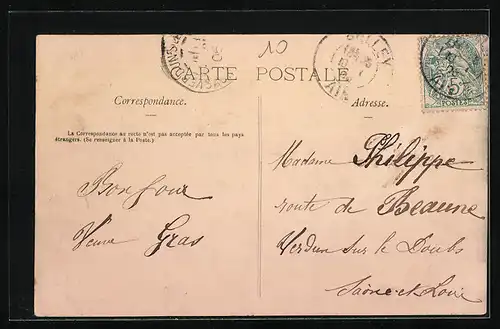 10
CARTE POSTALE
Correspondance.
Adresse.
La Correspondance au recto n'est pas acceptée par tous les pays
étrangers. (Se renseigner à la Poste.)
Bonjour
Veuve Gras
Madame Philippe
route de Beaune
Verdun sur le Doubs
Saône-et-Loire
POSTES